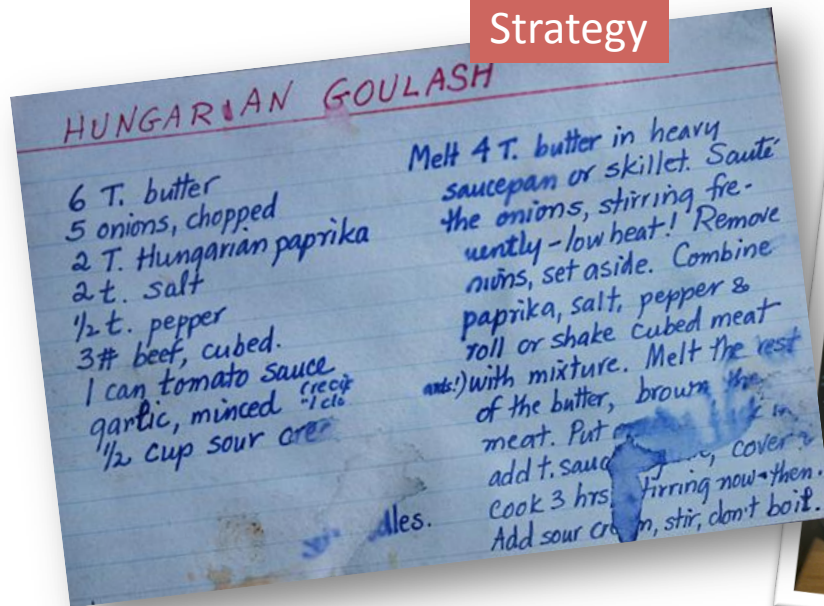 Strategy
HUNGARIAN GOULASH
6 T. butter
5 onions, chopped
2 T. Hungarian paprika
2 t. salt
1/2 t. pepper
3# beef, cubed.
1 can tomato sauce
garlic, minced
1/2 cup sour
Melt 4 T. butter in heavy
saucepan or skillet. Sauté
the onions, stirring fre-
uently - low heat! Remove
set aside. Combine
paprika, salt, pepper &
roll or shake cubed meat
with mixture. Melt the rest
of the butter, brown the
meat. Put in
add t. cover &
Cook 3 hrs now + then.
Add sour stir, don't boil.